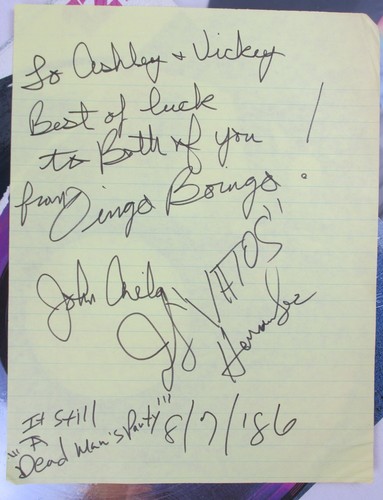 To Ashley + Vickey
Best of luck
to Both of you !
from Oingo Boingo
John Avila
"VATOS"
Hernandez
It Still
A
"Dead Man's Party"!!
8/7/'86